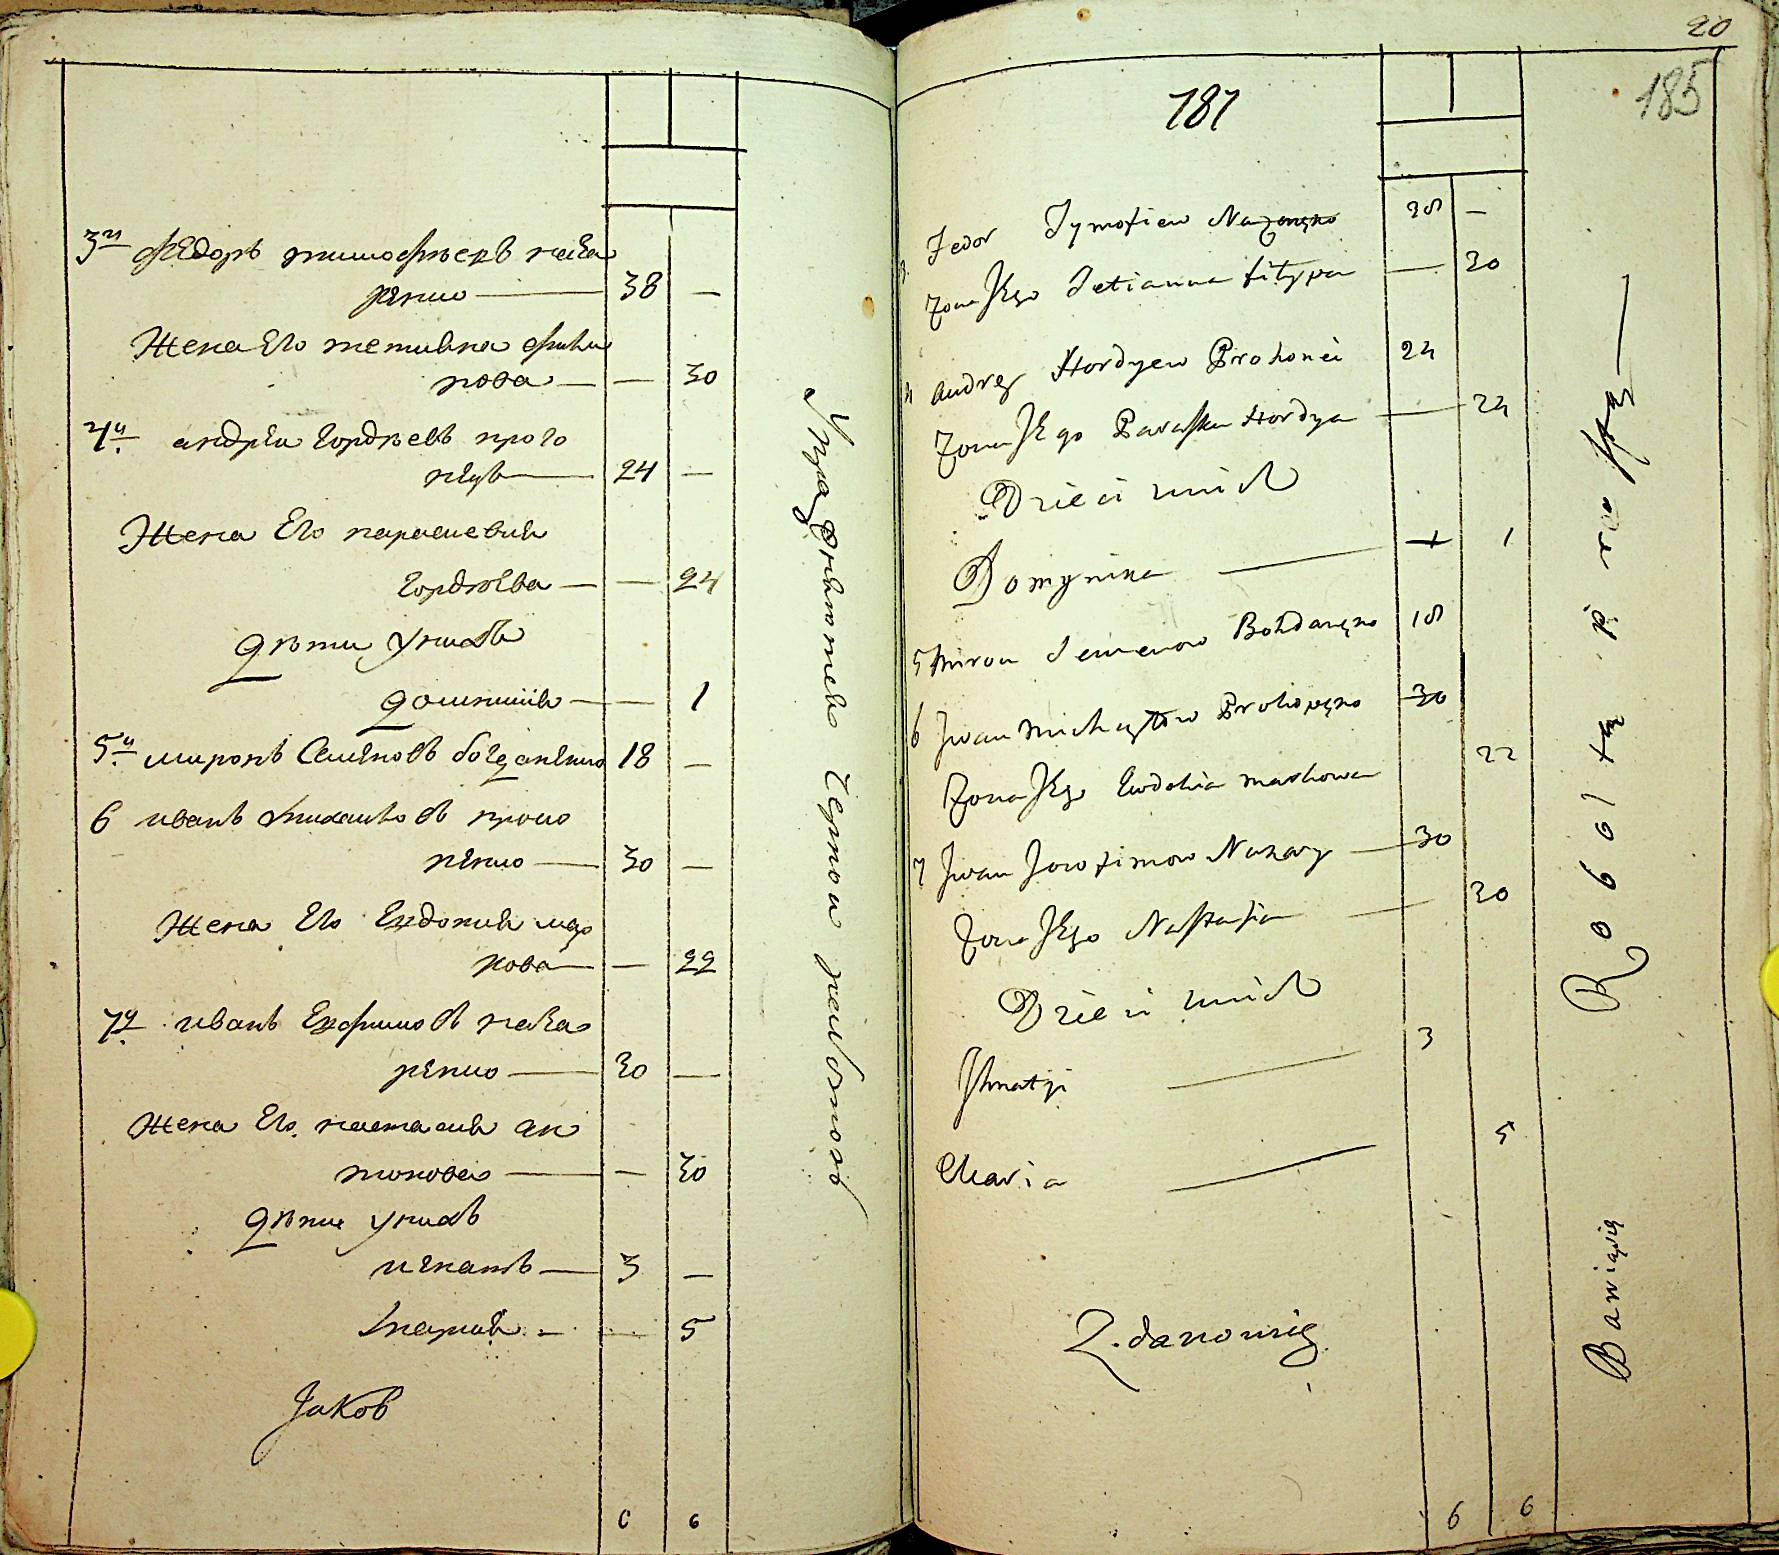 3й Федоръ тимофѣевъ наза
ренко — 38 —
Жена Его тетияна фили
пова — — 30
4й андрѣй Гордѣевъ проко
пецъ — 24 —
Жена Его парасковия
Гордѣева — — 24
дѣти у нихъ
домникия — — 1
5й миронъ Семеновъ богданенко 18 —
6 иванъ михаиловъ проко
пенко — 30 —
Жена Его Евдокия мар
кова — — 22
7й иванъ Ефимовъ наза
ренко — 30 —
Жена Его настасия ан
тонова — — 30
дѣти у нихъ
игнатъ — 3 —
мария — — 5
Jаковъ
6 6
Упражняютсявъ Черной работою
20
185
181
3 Fedor Tymofiew Nazarenko 38 —
Zona Jego Tetianna filypa — 30
4 Andrey Hordyew Prokopei 24
Zona Jego Paraska Hordya — 24
Dzieci u nich
Domynika — 1
5 Miron Semenow Bohdanenko 18
6 Jwan Michayłow Prokopenko 30
Zona Jego Ewdokia markowa 22
7 Jwan Jowfimow Nazary — 30
Zona Jego Nastasia — 30
Dzieci u nich
Jhnatyi — 3
Maria — 5
Zdanowicz
6 6
Bawiąsię Robotą